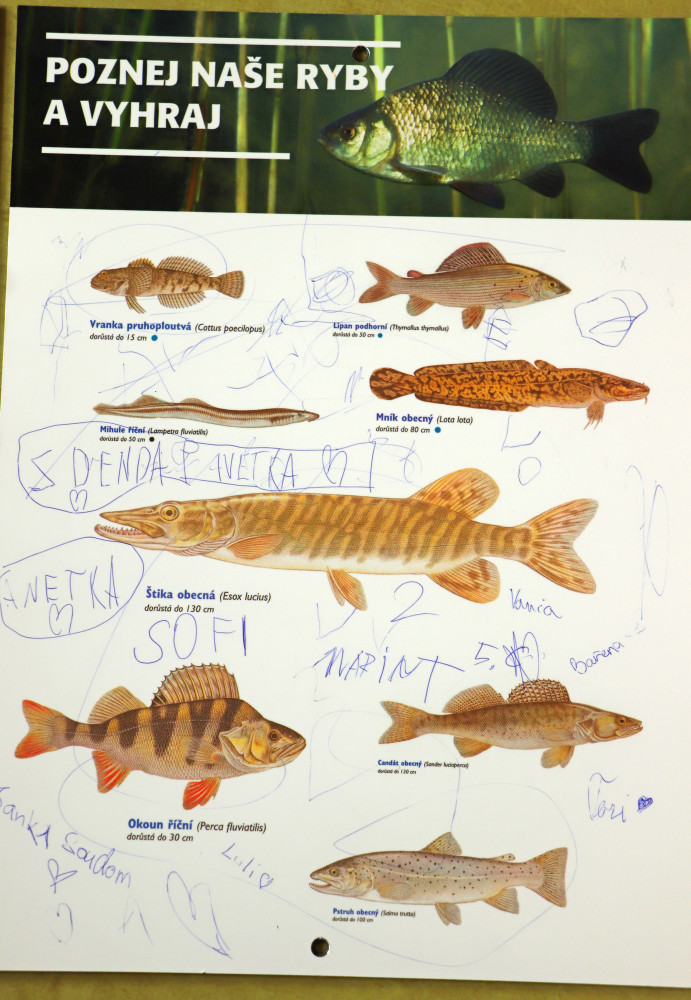 POZNEJ NAŠE RYBY
A VYHRAJ
Vranka pruhoploutvá (Cottus poecilopus)
dorůstá do 15 cm
Lipan podhorní (Thymallus thymallus)
dorůstá do 50 cm
Mihule říční (Lampetra fluviatilis)
dorůstá do 50 cm
Mník obecný (Lota lota)
dorůstá do 80 cm
Štika obecná (Esox lucius)
dorůstá do 130 cm
ANETKA
SOFI
2
Candát obecný (Sander lucioperca)
dorůstá do 130 cm
Okoun říční (Perca fluviatilis)
dorůstá do 30 cm
Pstruh obecný (Salmo trutta)
dorůstá do 100 cm